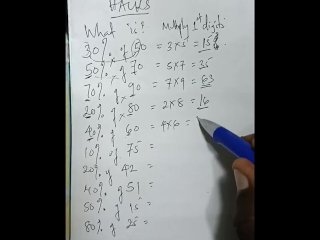 HACKS
What is? Multiply 1st digits
30% of 50 = 3x5 = 15
50% of 70 = 5x7 = 35
70% of 90 = 7x9 = 63
20% of 80 = 2x8 = 16
40% of 60 = 4x6 =
10% of 75 =
20% of 42 =
40% of 51 =
60% of 15 =
80% of 25 =